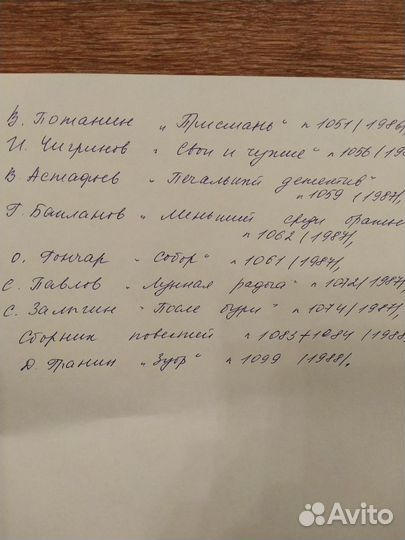 В. Потанин „Присмань“ n 1051 (1986),
И. Чигринов „Свои и чужие“ n 1056 (198
В. Астафьев „Печальный детектив“
n 1059 (1987),
Г. Бакланов „Меньший среди братье
n 1062 (1987),
О. Гончар „Собор“ n 1061 (1987),
С. Павлов „Лунная радуга“ n 1072 (1987),
С. Залыгин „После бури“ n 1074 (1987),
Сборник повестей n 1083+1084 (1988
Д. Гранин „Зубр“ n 1099 (1988).
Avito